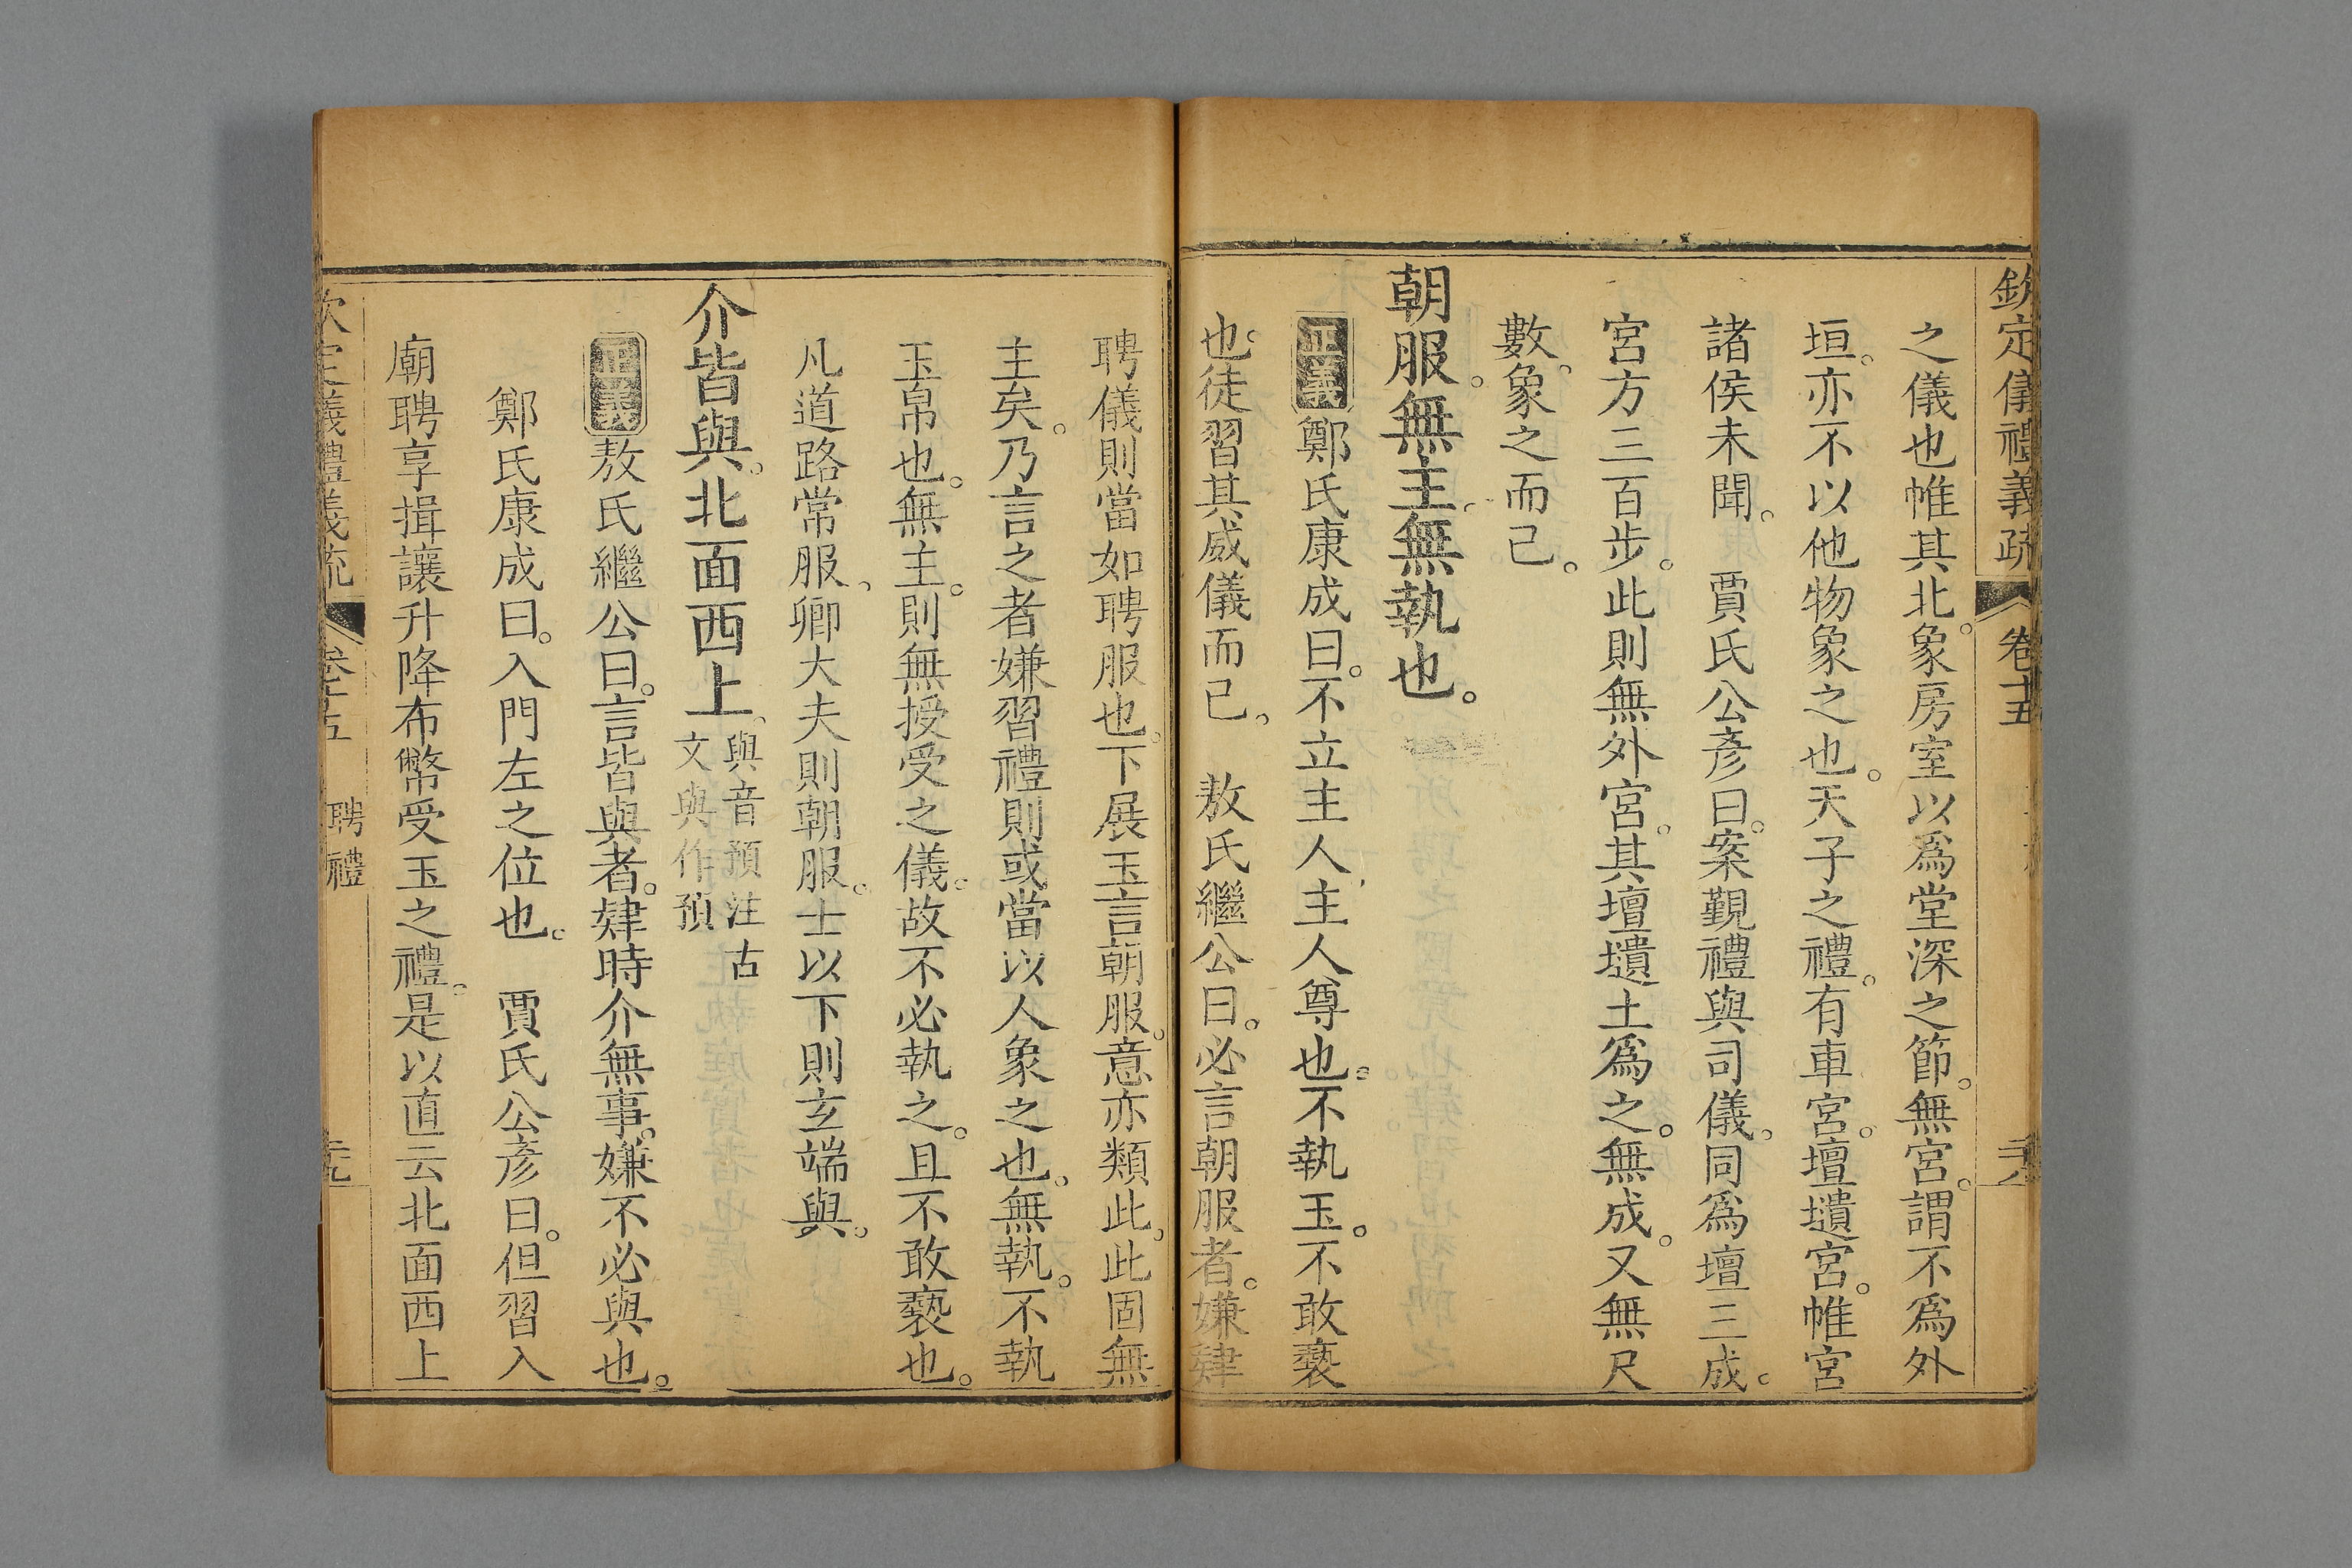 欽定儀禮義疏 卷十五 二十八
之儀也帷其北。象房室以爲堂深之節。無宮。謂不爲外
垣。亦不以他物象之也。天子之禮。有車宮。壇壝宮。帷宮
諸侯未聞。 賈氏公彥曰。案覲禮與司儀。同爲壇三成。
宮方三百步。此則無外宮。其壇壝土爲之。無成。又無尺
數。象之而已。
朝服。無主。無執也。
正義鄭氏康成曰。不立主人。主人尊也。不執玉。不敢褻
也。徒習其威儀而已。 敖氏繼公曰。必言朝服者。嫌肄
聘儀則當如聘服也。下展玉言朝服。意亦類此。此固無
主矣。乃言之者嫌習禮則或當以人象之也。無執。不執
玉帛也。無主。則無授受之儀。故不必執之。且不敢褻也。
凡道路常服、卿大夫則朝服。士以下則玄端與。
介皆與。北面西上。與音預注古文與作預
正義敖氏繼公曰。言皆與者。肄時介無事。嫌不必與也。
鄭氏康成曰。入門左之位也。 賈氏公彥曰。但習入
廟聘享揖讓升降布幣受玉之禮。是以直云北面西上
欽定儀禮義疏 卷十五 聘禮 二十九